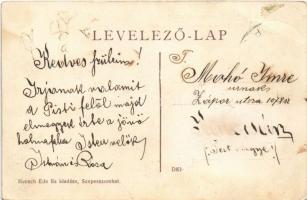 LEVELEZŐ-LAP
Kedves fiileim!
Irjanak valamit
a Pisti felől majd
elmegyek érte a jövő
hónapba Isten velük
István és Rosa
T.
Mohó Imre
urnak
Zápor utca
(Pest megye)
Hensch Ede fia kiadása, Szepesszombat.